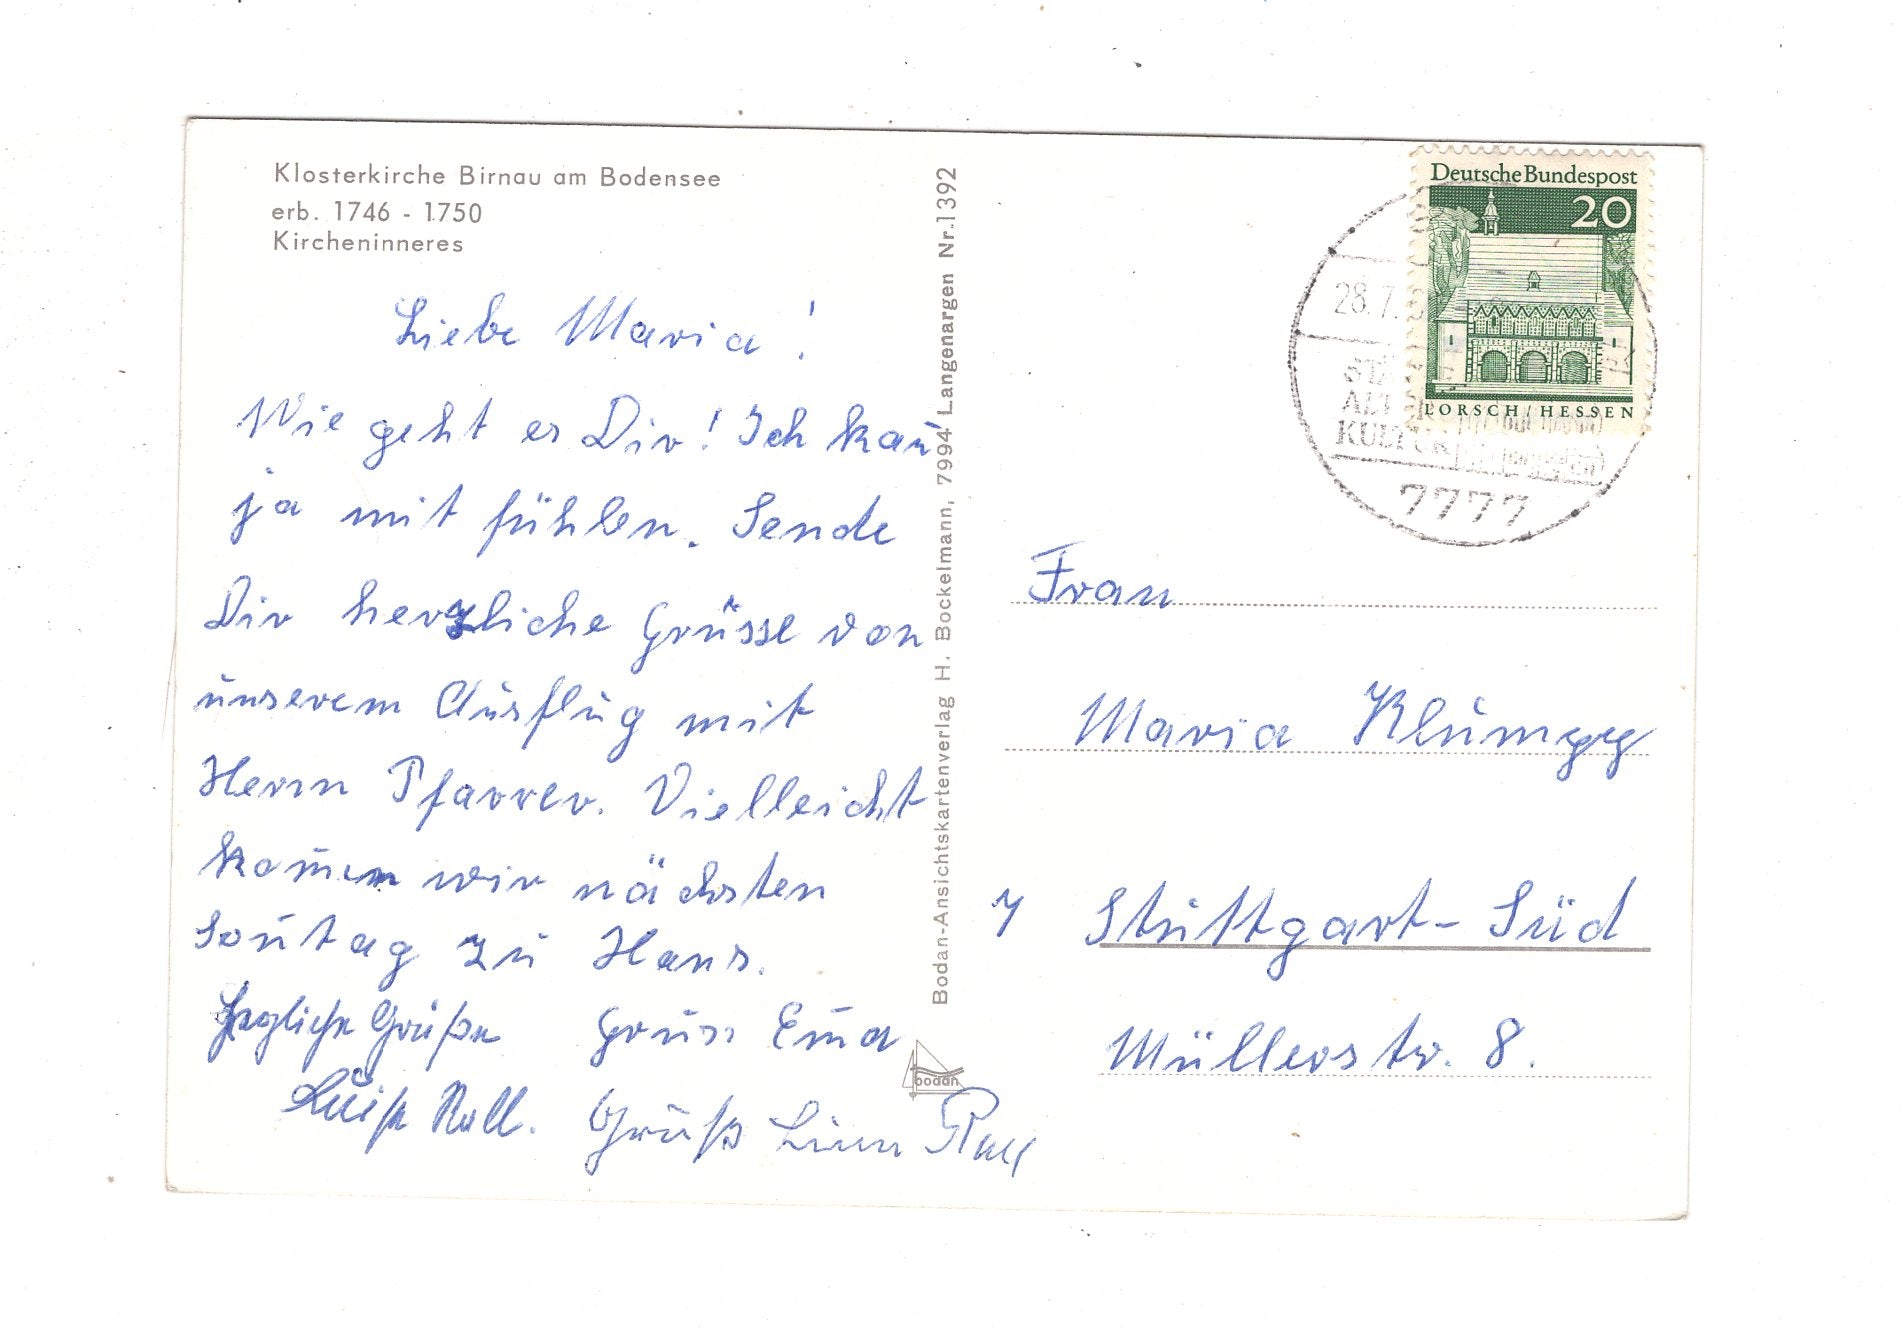 Klosterkirche Birnau am Bodensee
erb. 1746 - 1750
Kircheninneres
Liebe Maria!
Wie geht es Dir! Ich kan̄
ja mit fühlen. Sende
Dir herzliche Grüsse von
unserem Ausflug mit
Herrn Pfarrer. Vielleicht
kom̄en wir nächsten
Son̄tag zu Hans.
Herzliche Grüße
Luise Roll.
Gruss Em̄a
Gruß
Bodan-Ansichtskartenverlag H. Bockelmann, 7994 Langenargen Nr. 1392
bodan
Deutsche Bundespost
20
LORSCH / HESSEN
28.7.
KULTUR
7777
Frau
Maria
7 Stuttgart-Süd
Müllerstr. 8.